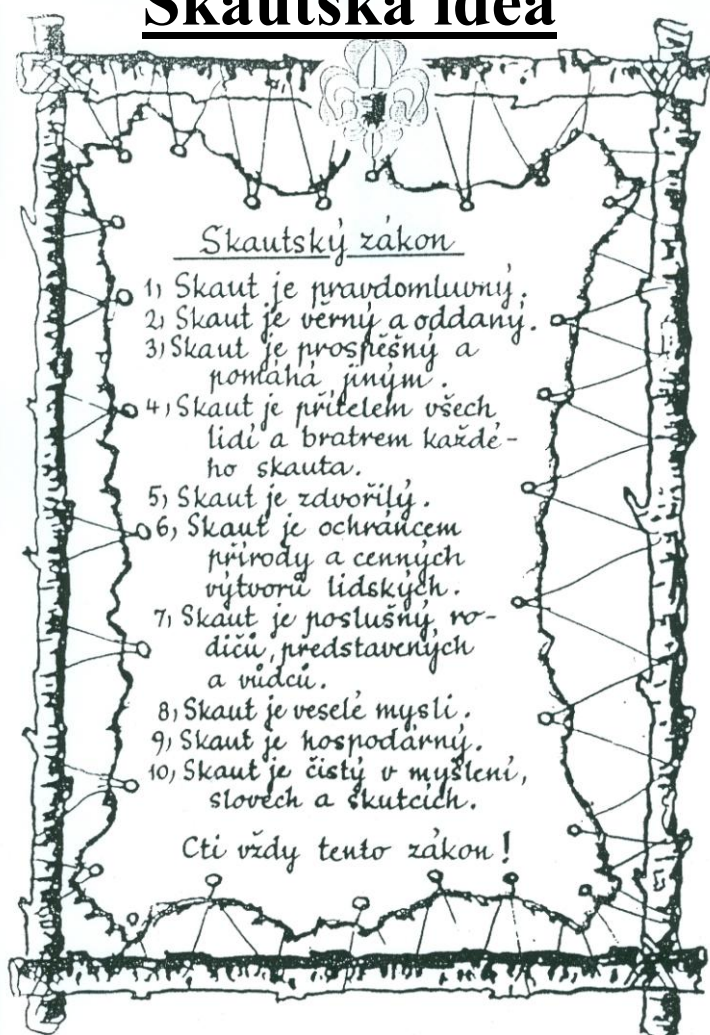 Skautská idea
Skautský zákon
1) Skaut je pravdomluvný.
2) Skaut je věrný a oddaný.
3) Skaut je prospěšný a
pomáhá jiným.
4) Skaut je přítelem všech
lidí a bratrem každé-
ho skauta.
5) Skaut je zdvořilý.
6) Skaut je ochráncem
přírody a cenných
výtvorů lidských.
7) Skaut je poslušný ro-
dičů, představených
a vůdců.
8) Skaut je veselé mysli.
9) Skaut je hospodárný.
10) Skaut je čistý v myšlení,
slovech a skutcích.
Cti vždy tento zákon!